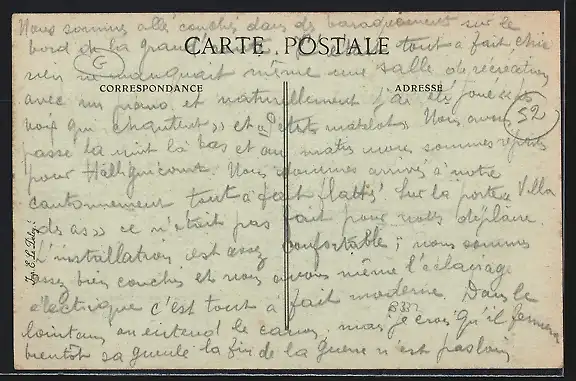 Nous sommes allé couchés dans des baraquement sur le
bord de la grande C'était tout à fait chic
CARTE POSTALE
G
rien ne manquait même une salle de récréation
CORRESPONDANCE
ADRESSE
avec un piano et naturellement j'ai été joué « les
voix qui chantent » et « P'tits matelots. Nous avons
52
passé la nuit là bas et au matin nous sommes repartis
pour Halliguicourt. Nous sommes arrivés à notre
cantonnement tout à fait flattés Sur la porte « Villa
des as » ce n'était pas fait pour nous déplaire.
L'installation est assez confortable ; nous sommes
assez bien couchés et nous avons même l'éclairage
électrique c'est tout à fait moderne. Dans le
B332
lointain on entend le canon, mais je crois qu'il fermera
bientôt sa gueule la fin de la guerre n'est pas loin